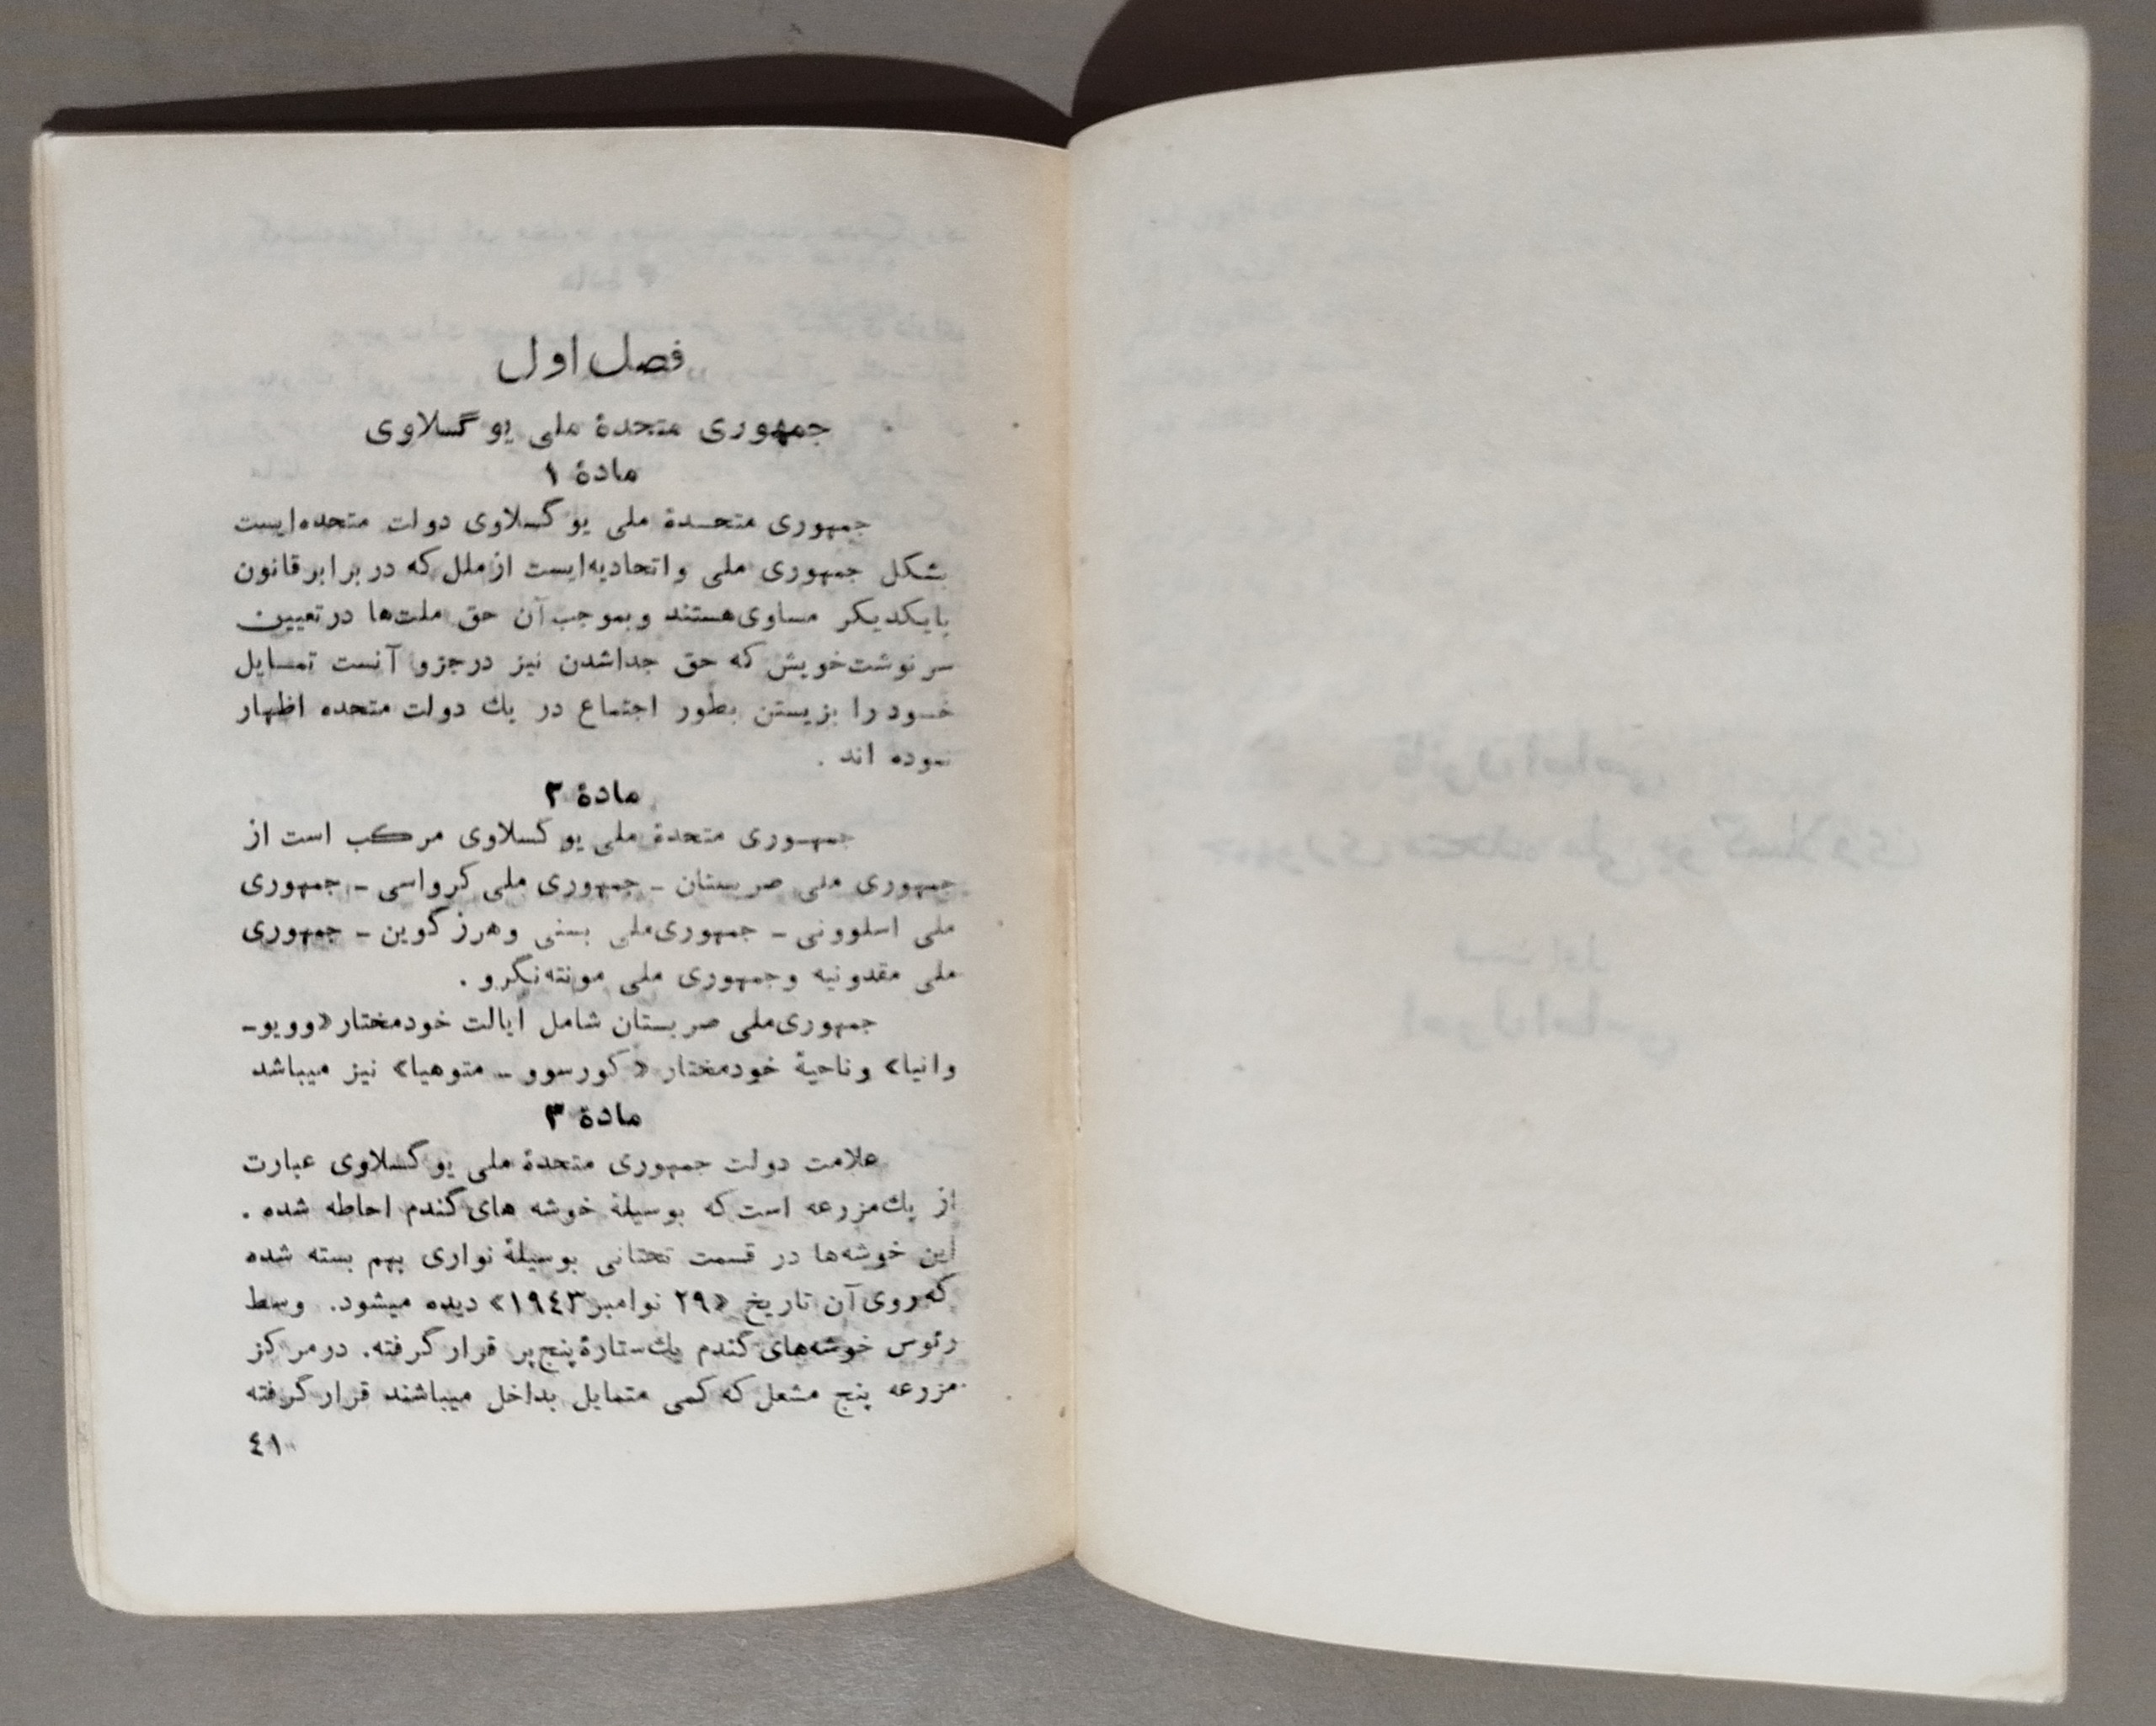 فصل اول
جمهوری متحدهٔ ملی یوگسلاوی
مادهٔ ۱
جمهوری متحدهٔ ملی یوگسلاوی دولت متحده‌ایست
بشکل جمهوری ملی و اتحادیه‌ایست از ملل که در برابر قانون
بایکدیگر مساوی هستند و بموجب آن حق ملت‌ها در تعیین
سرنوشت خویش که حق جداشدن نیز درجزو آنست تمایل
خود را بزیستن بطور اجتماع در یك دولت متحده اظهار
نموده اند .
مادهٔ ۲
جمهوری متحدهٔ ملی یوگسلاوی مرکب است از
جمهوری ملی صربستان - جمهوری ملی کرواسی - جمهوری
ملی اسلوونی - جمهوری ملی بسنی وهرزگوین - جمهوری
ملی مقدونیه وجمهوری ملی مونته‌نگرو .
جمهوری ملی صربستان شامل ایالت خودمختار «وویو-
وانیا» و ناحیهٔ خودمختار «کورسوو - متوهیا» نیز میباشد
مادهٔ ۳
علامت دولت جمهوری متحدهٔ ملی یوگسلاوی عبارت
از یك مزرعه است که بوسیلهٔ خوشه های گندم احاطه شده .
این خوشه‌ها در قسمت تحتانی بوسیلهٔ نواری بهم بسته شده
که روی آن تاریخ «۲۹ نوامبر ۱۹٤۳» دیده میشود. وسط
رئوس خوشه‌های گندم یك ستارهٔ پنج پر قرار گرفته. در مرکز
مزرعه پنج مشعل که کمی متمایل بداخل میباشند قرار گرفته
٤۱